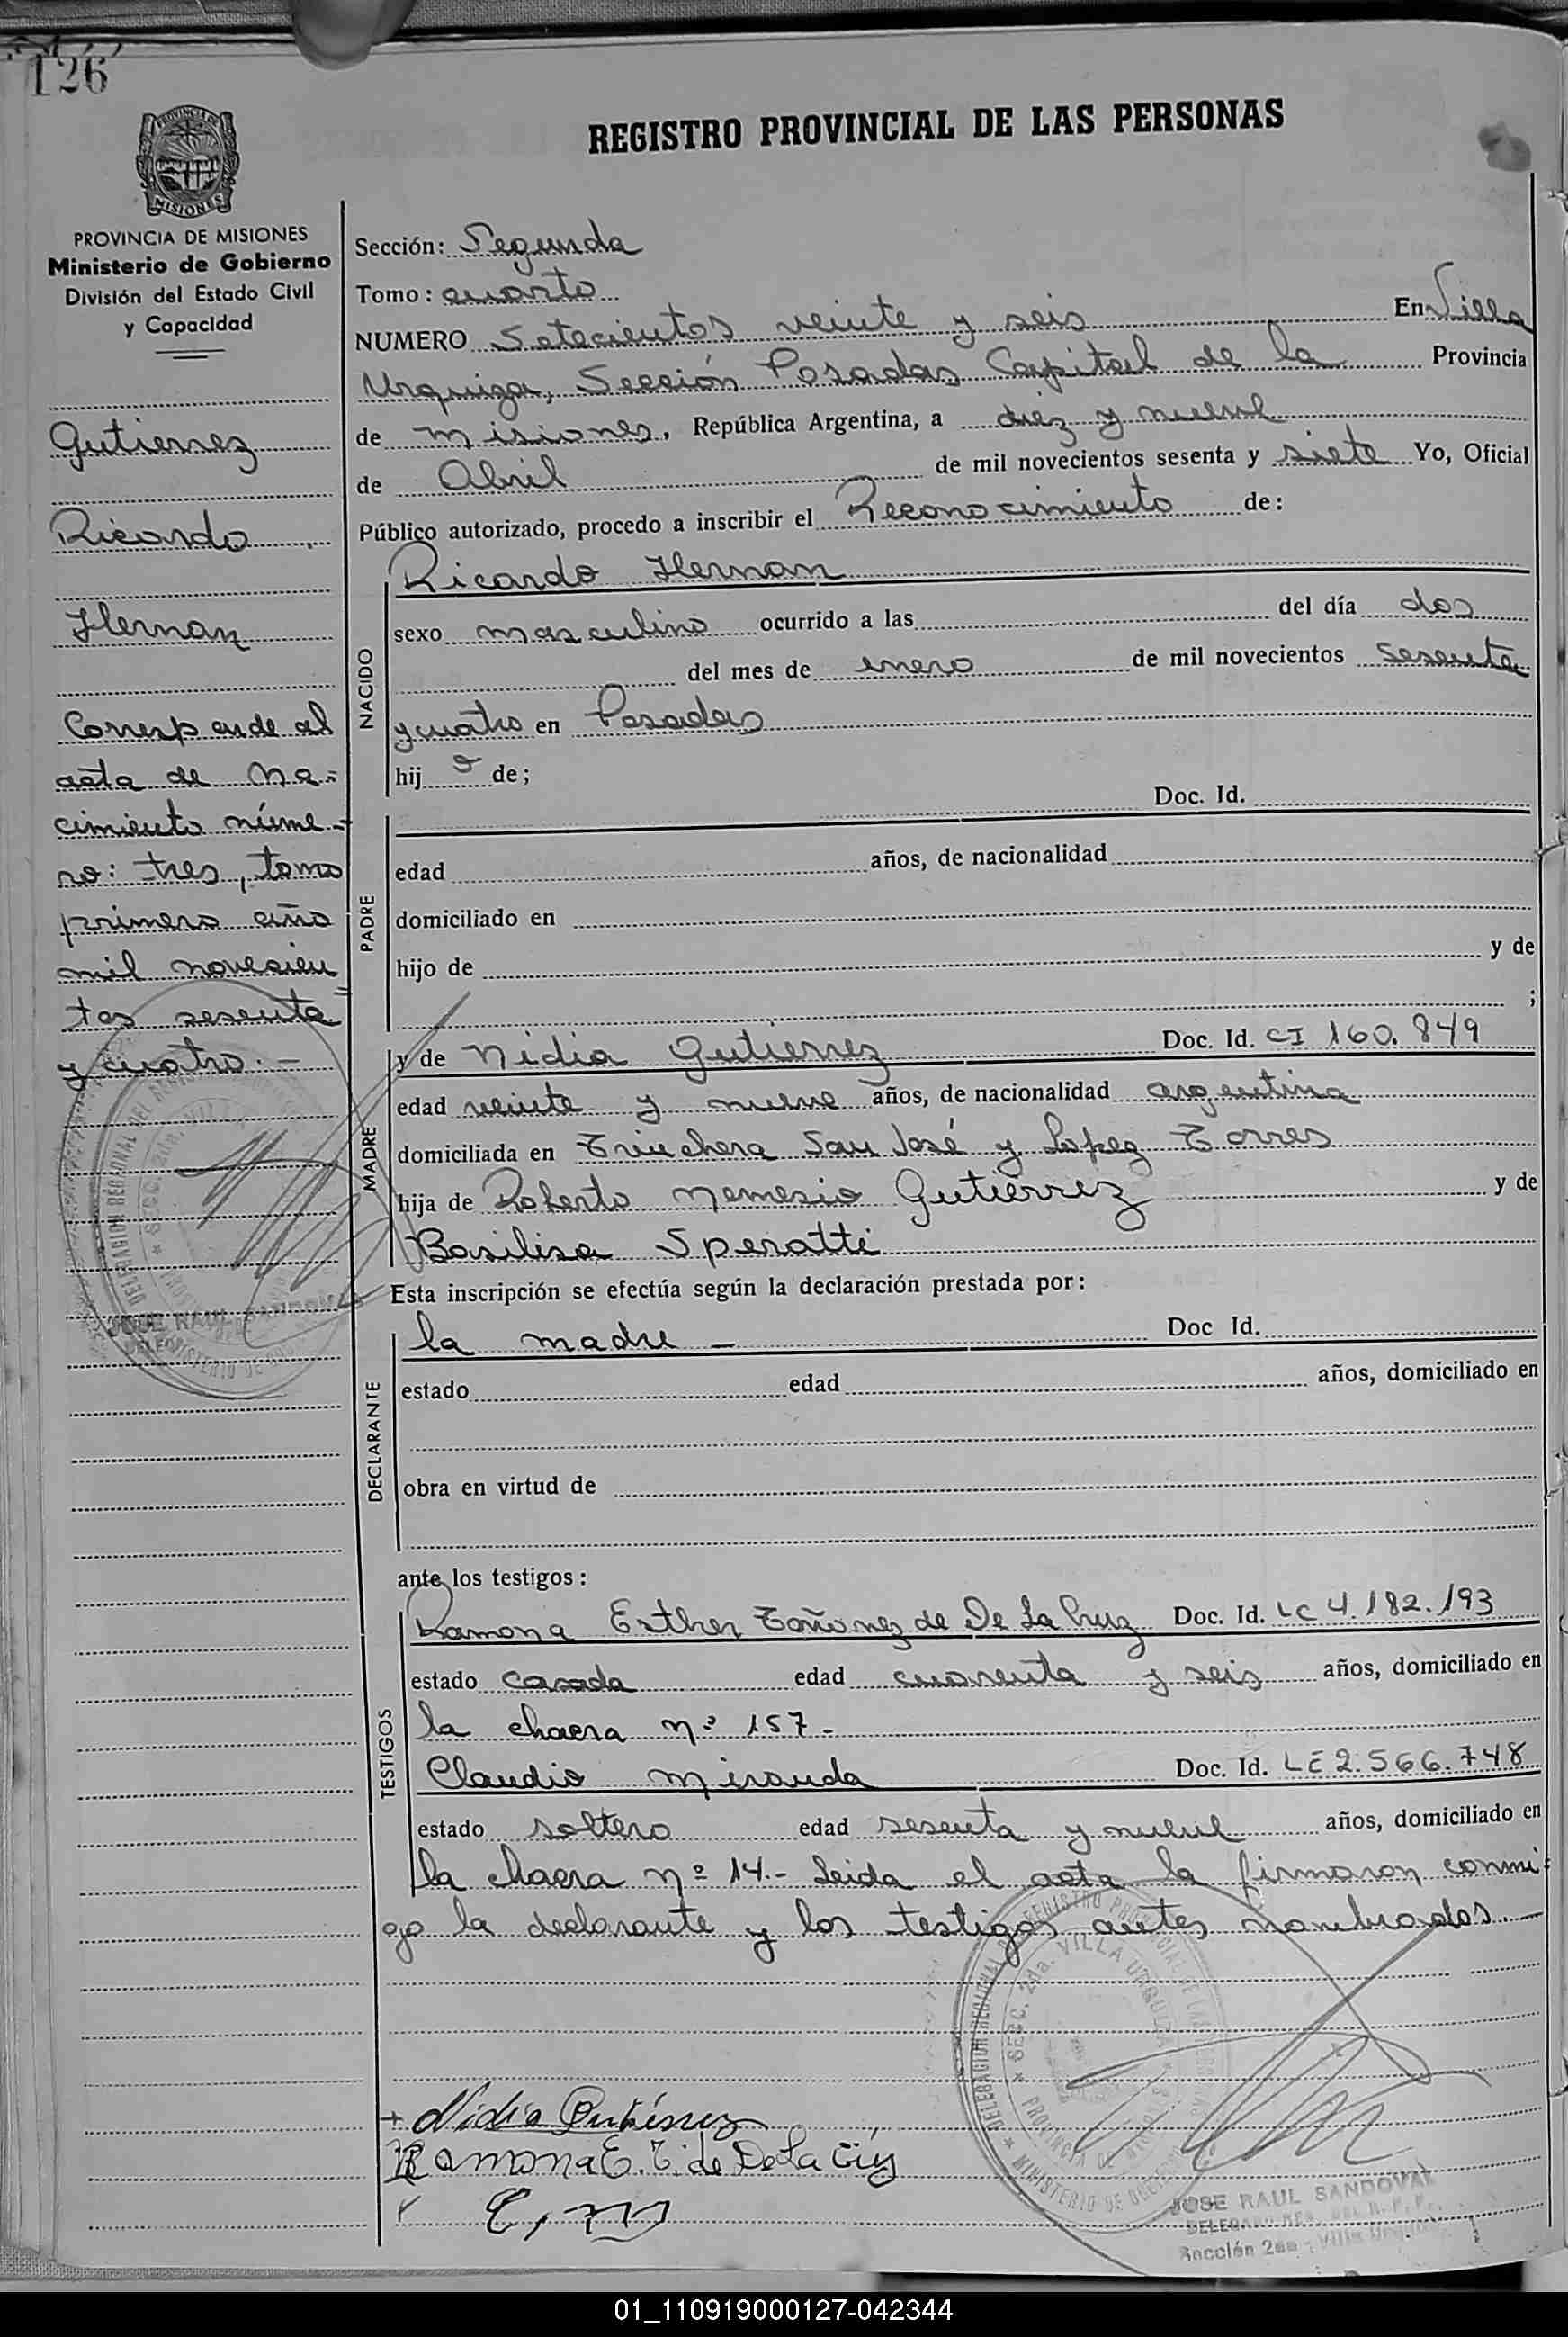 126
REGISTRO PROVINCIAL DE LAS PERSONAS
MISIONES
PROVINCIA DE MISIONES
Ministerio de Gobierno
División del Estado Civil
y Capacidad
Gutierrez
Ricardo
Hernan
Corresponde al
acta de Na-
cimiento núme-
ro: tres, tomo
primero año
mil novecien
tos sesenta
y cuatro.-
Sección: Segunda
Tomo: cuarto
NUMERO Setecientos veinte y seis En Villa
Urquiza, Sección Posadas Capital de la Provincia
de Misiones, República Argentina, a diez y nueve
de Abril de mil novecientos sesenta y siete Yo, Oficial
Público autorizado, procedo a inscribir el Reconocimiento de:
NACIDO
Ricardo Hernan
sexo masculino ocurrido a las del día dos
del mes de enero de mil novecientos sesenta
y cuatro en Posadas
hij o de;
PADRE
Doc. Id.
edad años, de nacionalidad
domiciliado en
hijo de y de
;
MADRE
y de Nidia Gutierrez Doc. Id. CI 160.849
edad veinte y nueve años, de nacionalidad argentina
domiciliada en Trinchera San José y Lopez Torres
hija de Roberto Nemesio Gutiérrez y de
Basilisa Speratti
Esta inscripción se efectúa según la declaración prestada por:
DECLARANTE
la madre - Doc Id.
estado edad años, domiciliado en
obra en virtud de
ante los testigos:
TESTIGOS
Ramona Esther Toñonez de De La Cruz Doc. Id. LC 4.182.193
estado casada edad cuarenta y seis años, domiciliado en
la chacra nº 157-
Claudio Miranda Doc. Id. LE 2.566.748
estado soltero edad sesenta y nueve años, domiciliado en
la chacra nº 14.- Leida el acta la firmaron conmi-
go la declarante y los testigos antes nombrados.-
Nidia Gutiérrez
Ramona E. T. de De La Cruz
C, M
JOSE RAUL SANDOVAL
Sección 2da - Villa Urquiza
01_110919000127-042344